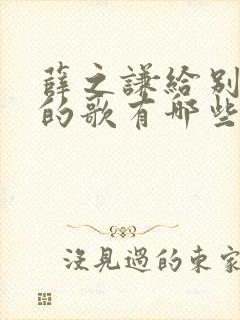 薛之謙給別
的歌有哪些
沒見過的東家